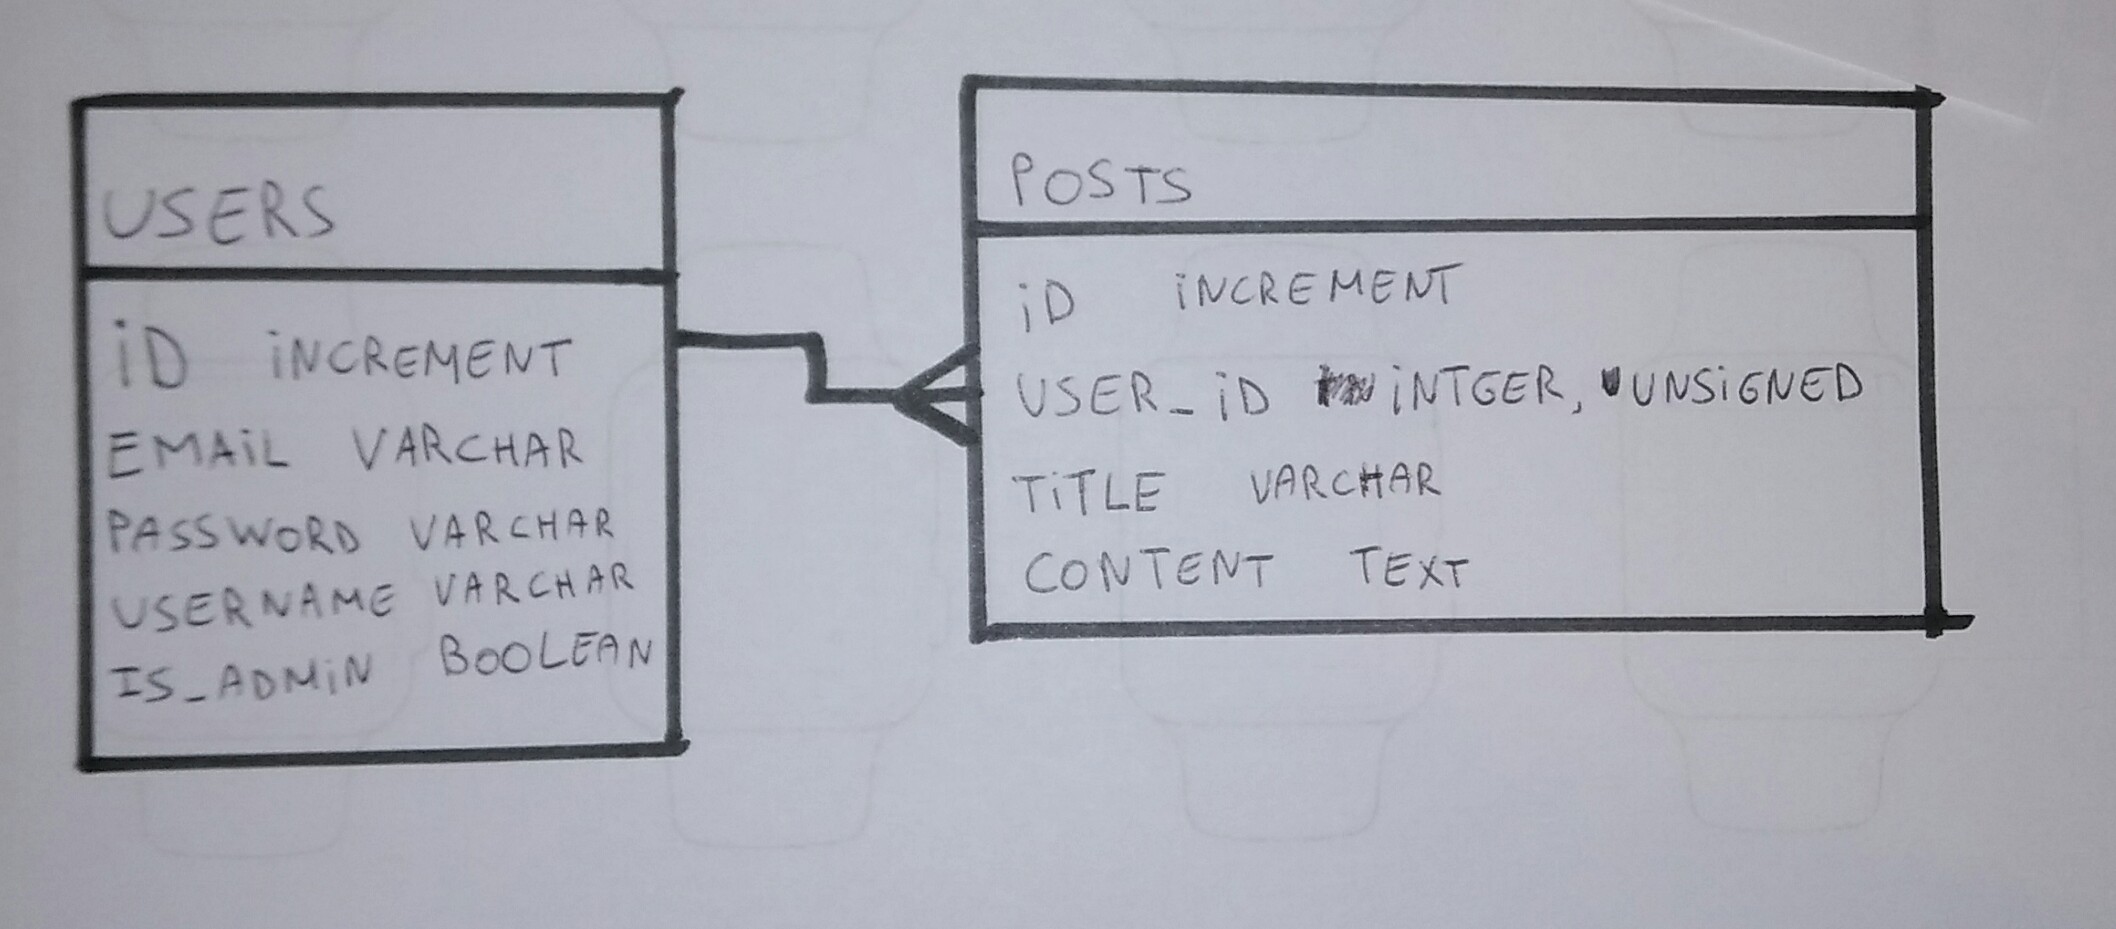 USERS
iD iNCREMENT
EMAiL VARCHAR
PASSWORD VARCHAR
USERNAME VARCHAR
IS_ADMiN BOOLEAN
POSTS
iD iNCREMENT
USER_iD iNTGER, UNSiGNED
TiTLE VARCHAR
CONTENT TEXT